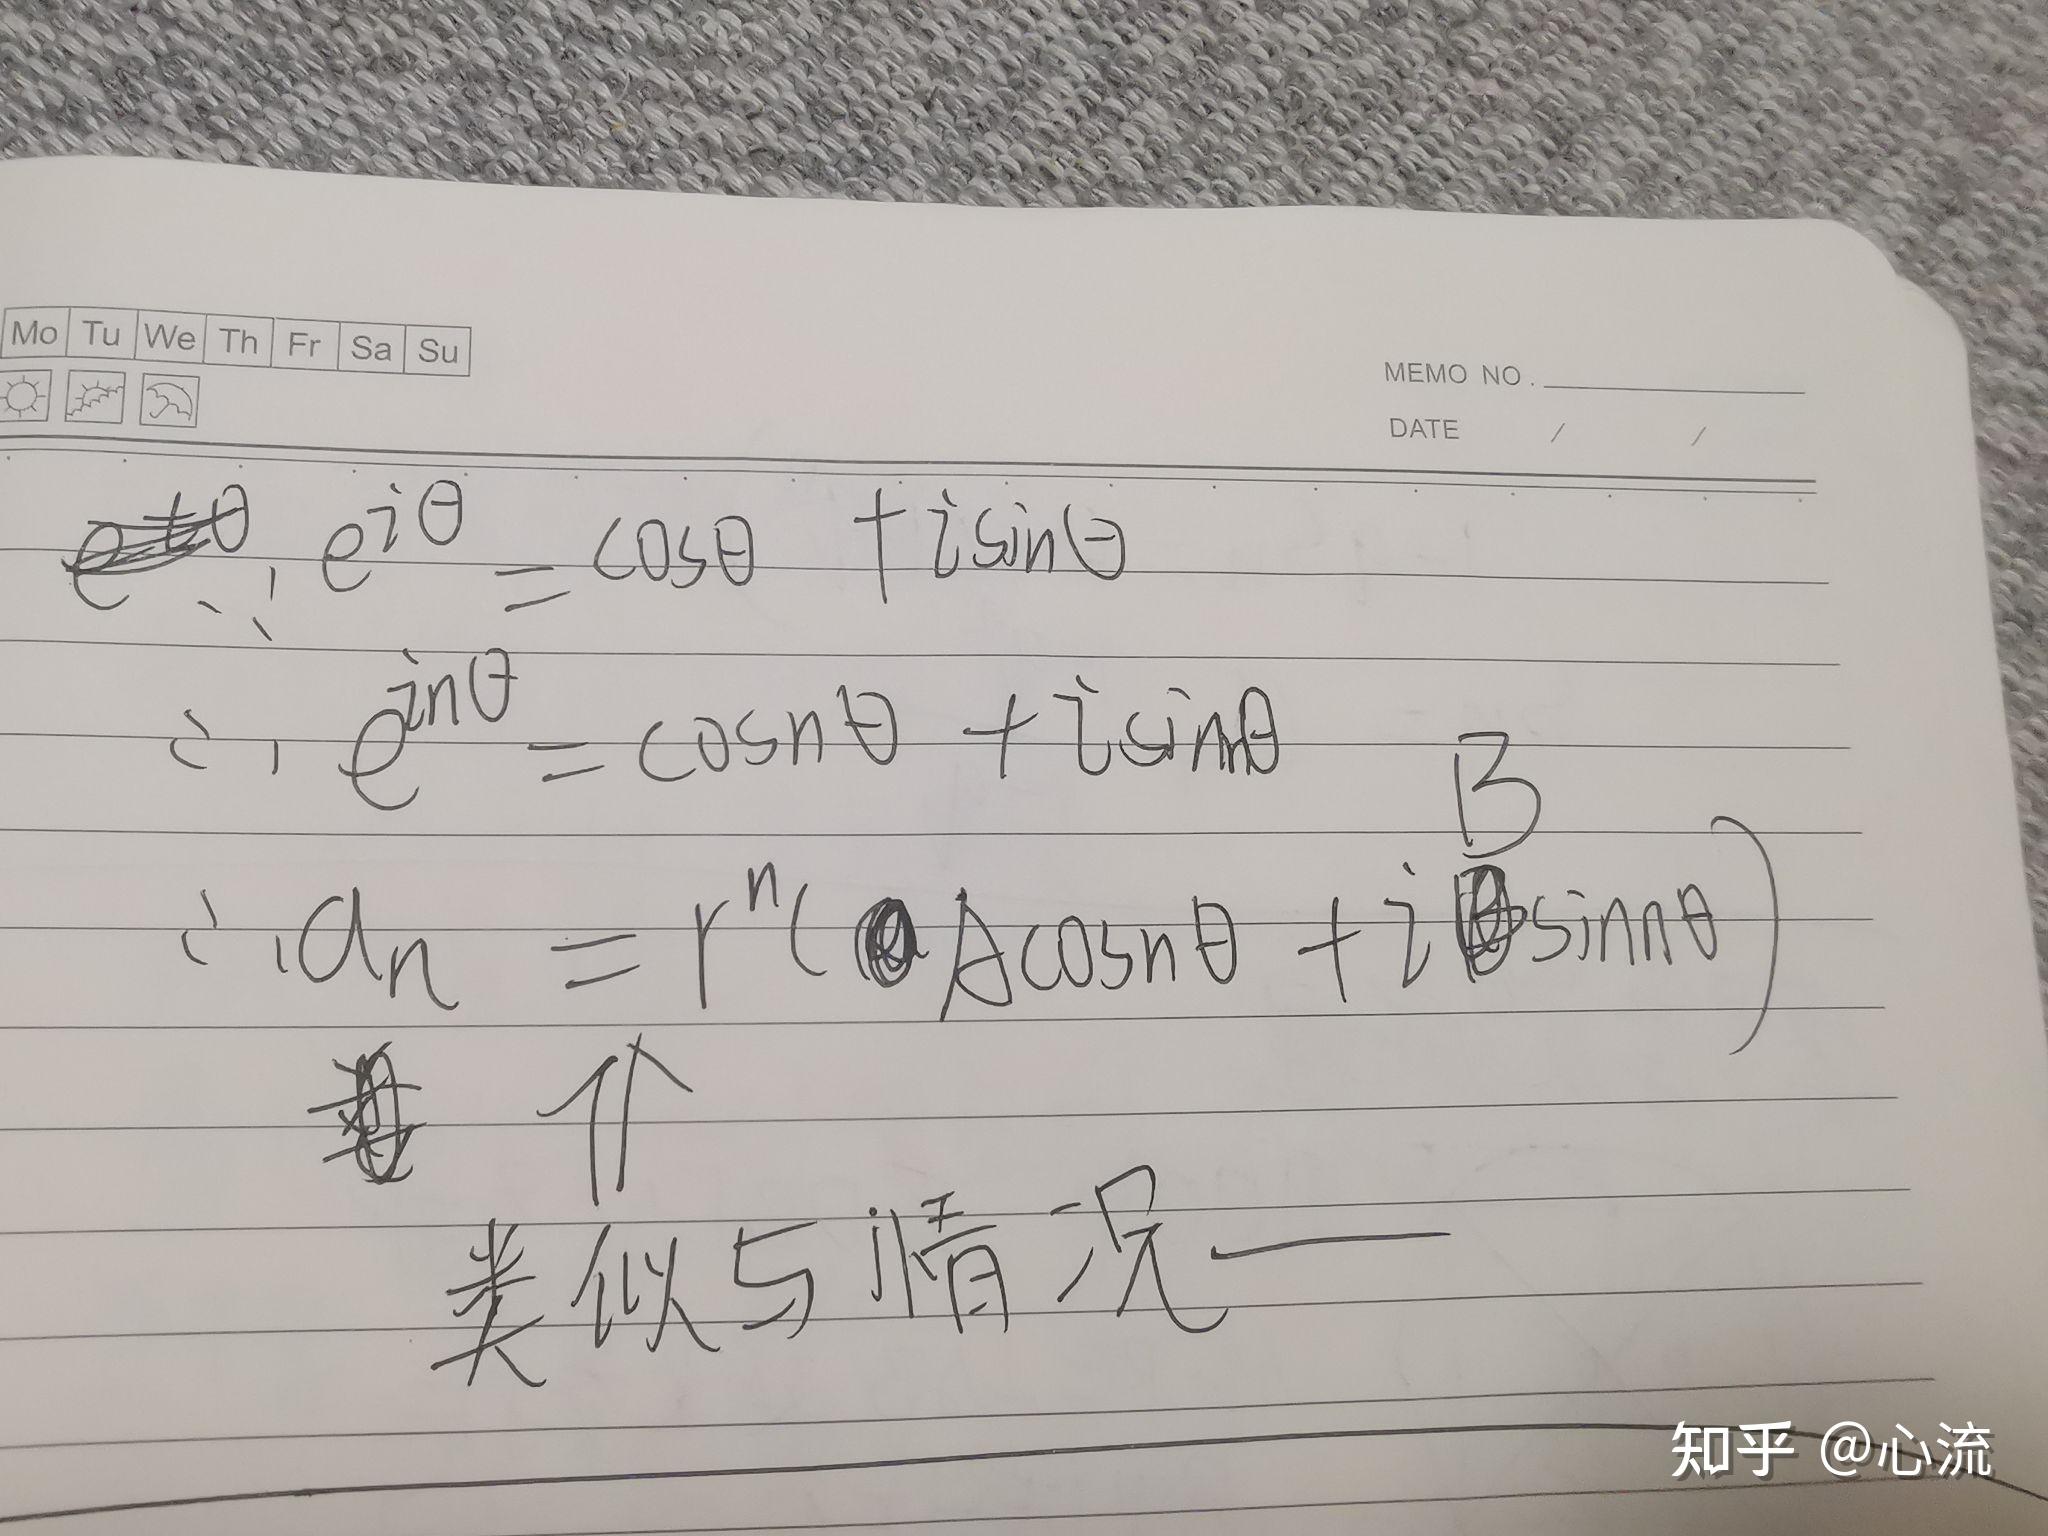 Mo Tu We Th Fr Sa Su
MEMO NO.
DATE / /
∵ e^{iθ} = cosθ + isinθ
∴ e^{inθ} = cosnθ + isinnθ
B
∴ a_n = r^n(Acosnθ + isinnθ)
⇑
类似与情况一
知乎 @心流